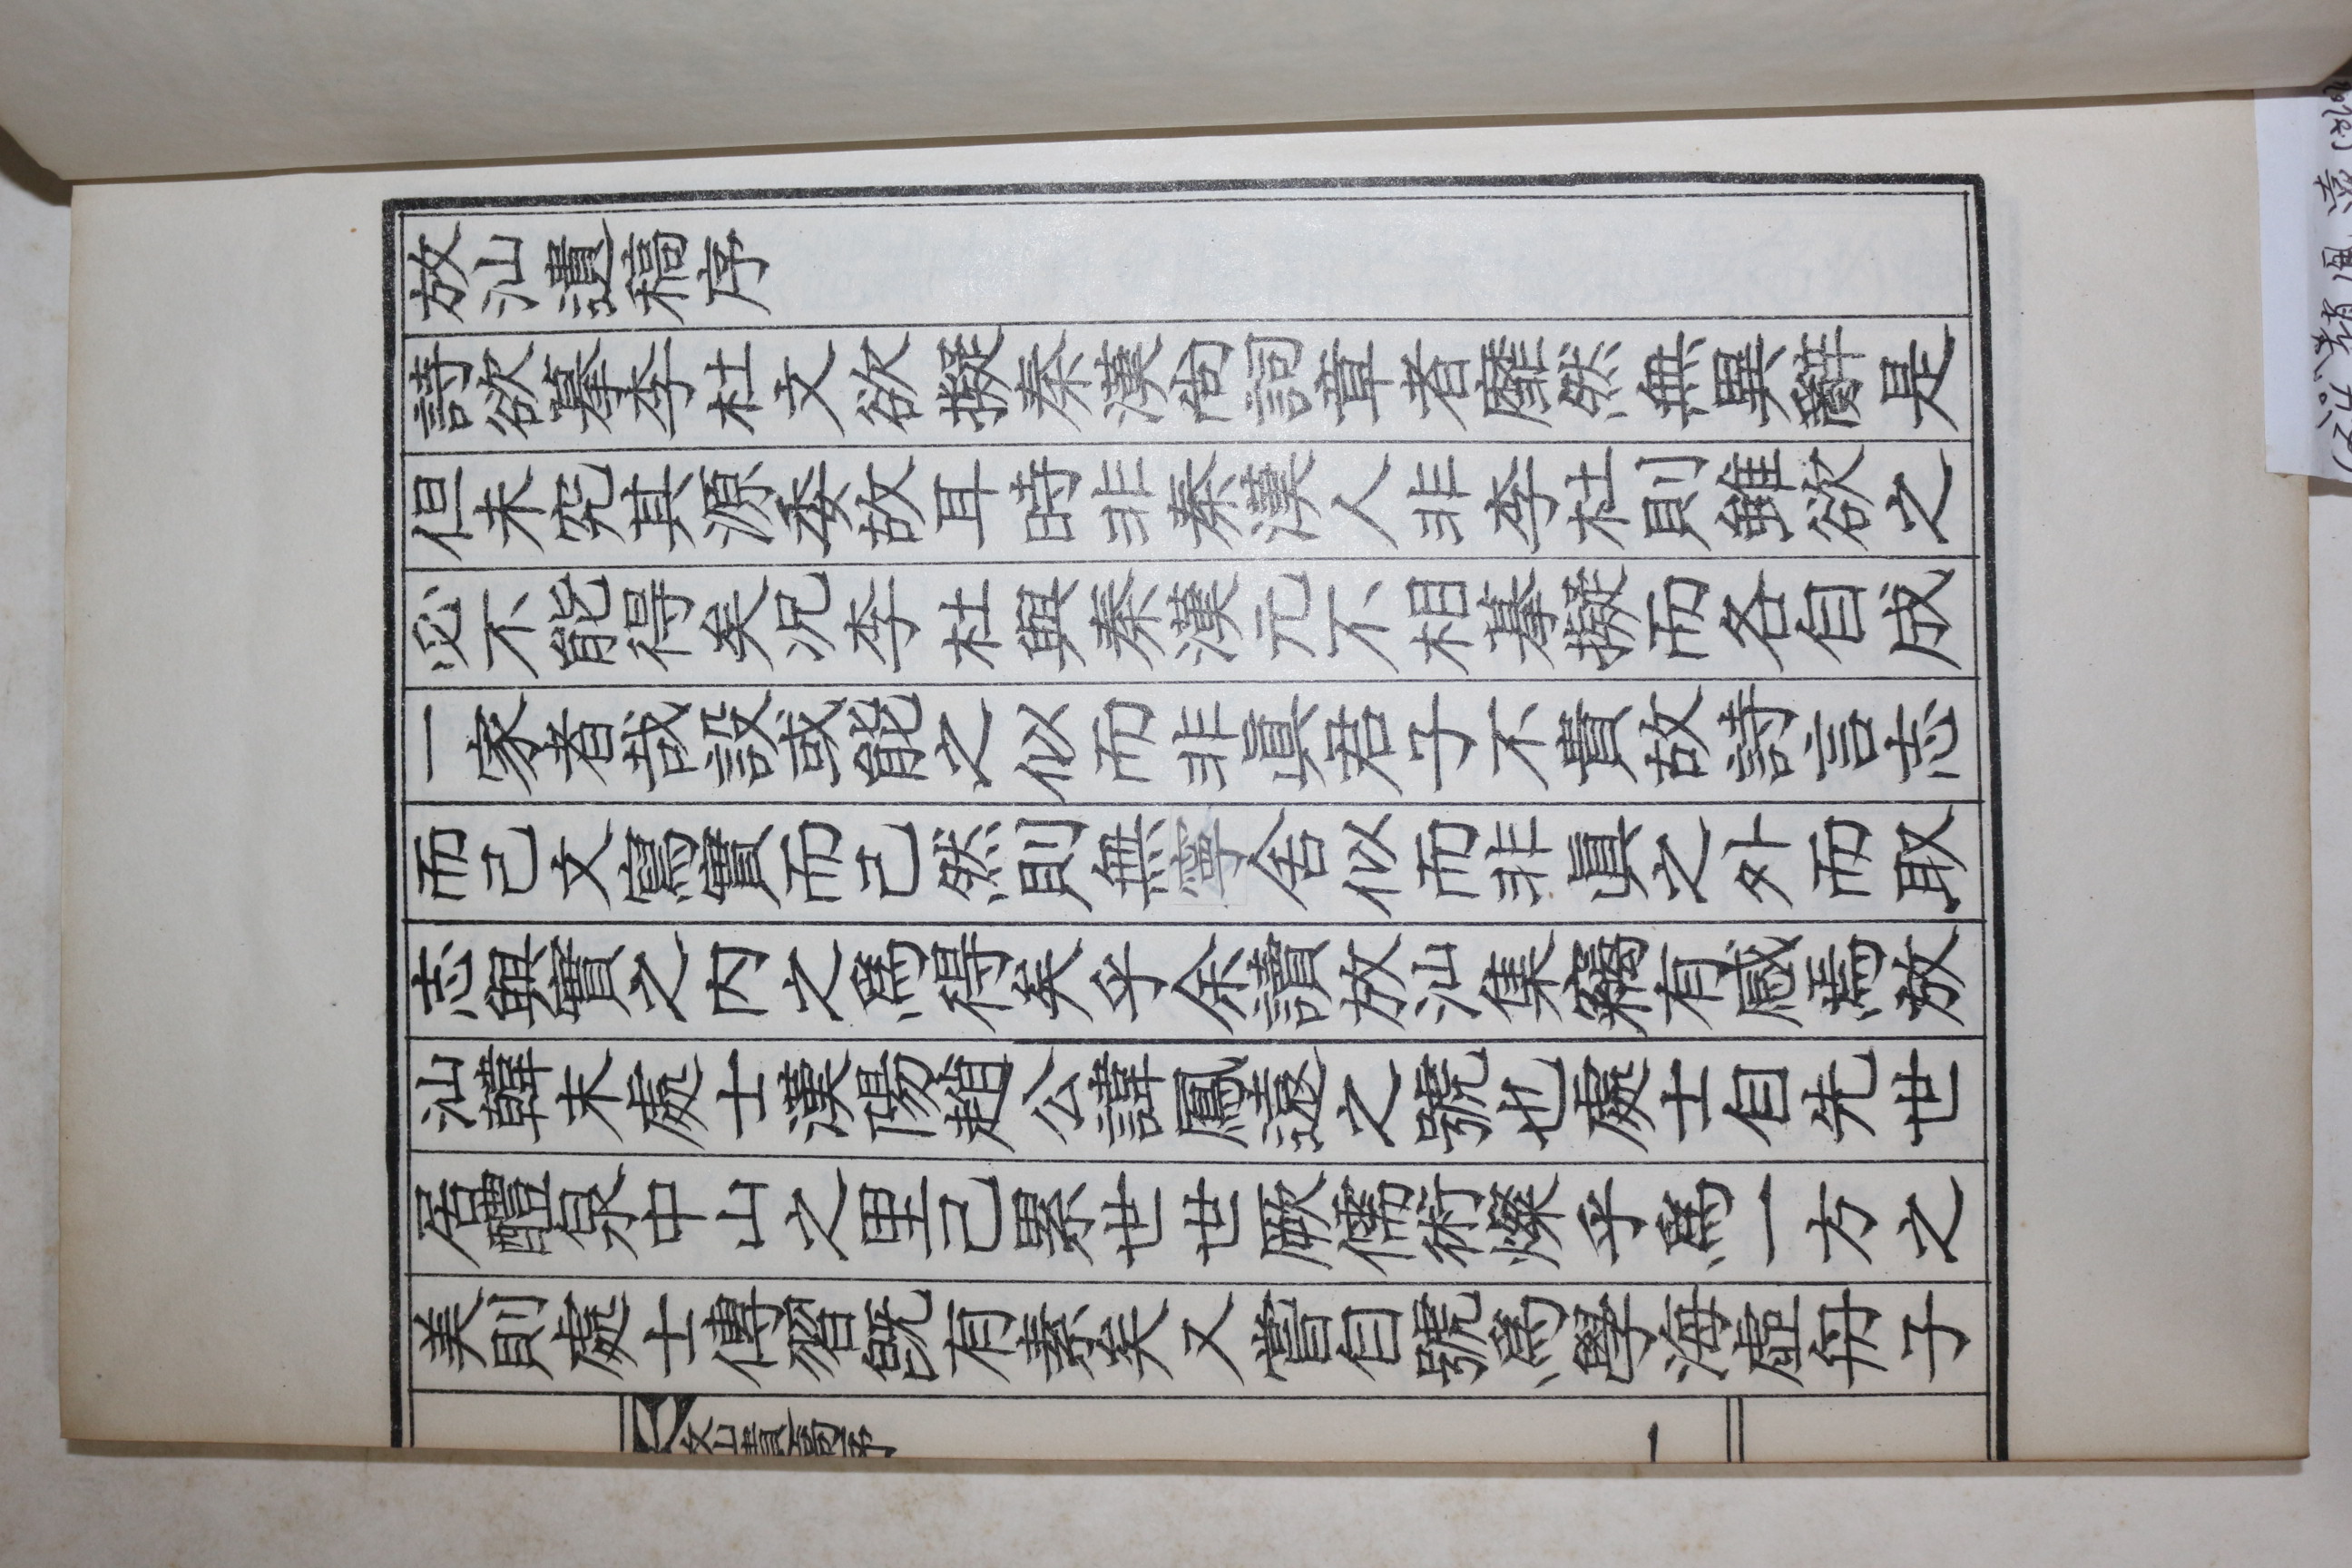 放汕遺稿序
詩欲摹李杜文欲擬秦漢尚詞章者靡然無異辭是
但未究其源委故耳時非秦漢人非李杜則雖欲之
必不能得矣況李杜與秦漢元不相摹擬而各自成
一家者哉設或能之似而非眞君子不貴故詩言志
而己文寫實而己然則無寧舍似而非眞之外而取
志與實之內之爲得矣乎余讀放汕集竊有感焉放
汕韓末處士漢陽趙公諱鳳遠之號也處士自先世
居醴泉中山之里己累世世厥儒術燦乎爲一方之
美則處士傳習旣有素矣又嘗自號爲學海虛舟子
一